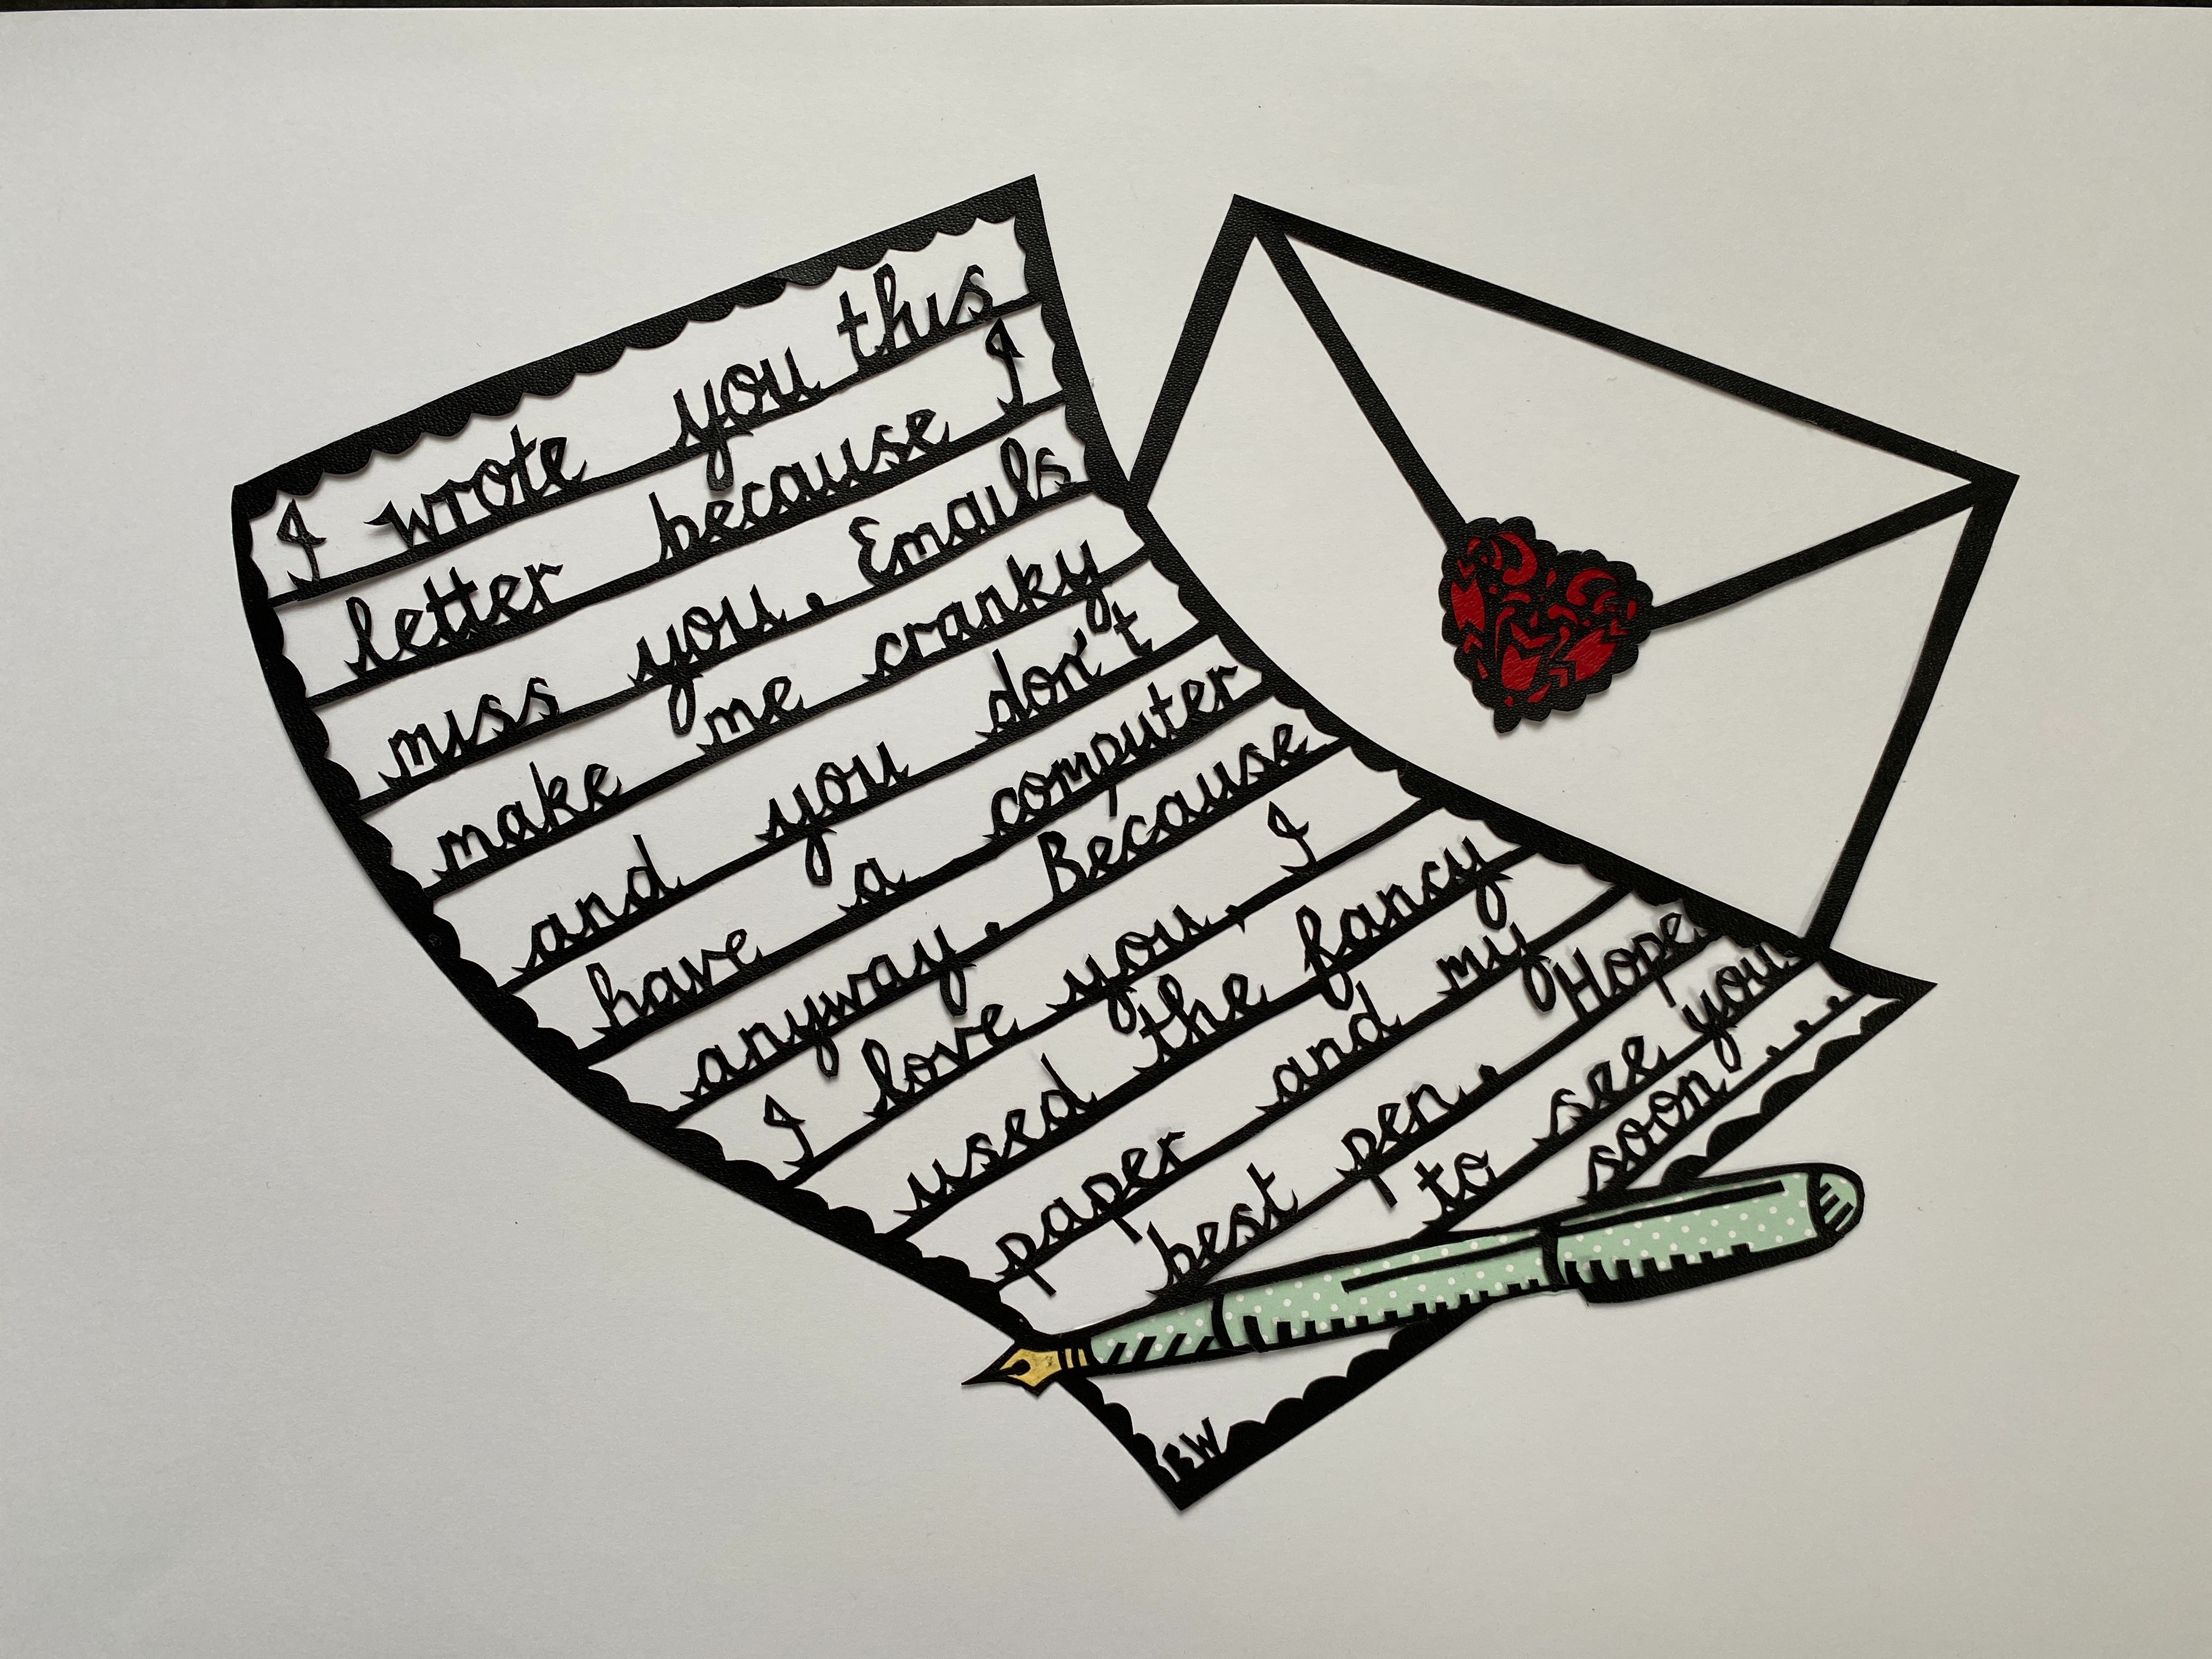 I wrote you this
letter because I
miss you. Emails
make me cranky
and you don't
have a computer
anyway. Because
I love you, I
used the fancy
paper and my
best pen. Hope
to see you
soon....
BW